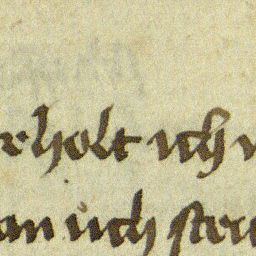 rholt ich
an uch ster